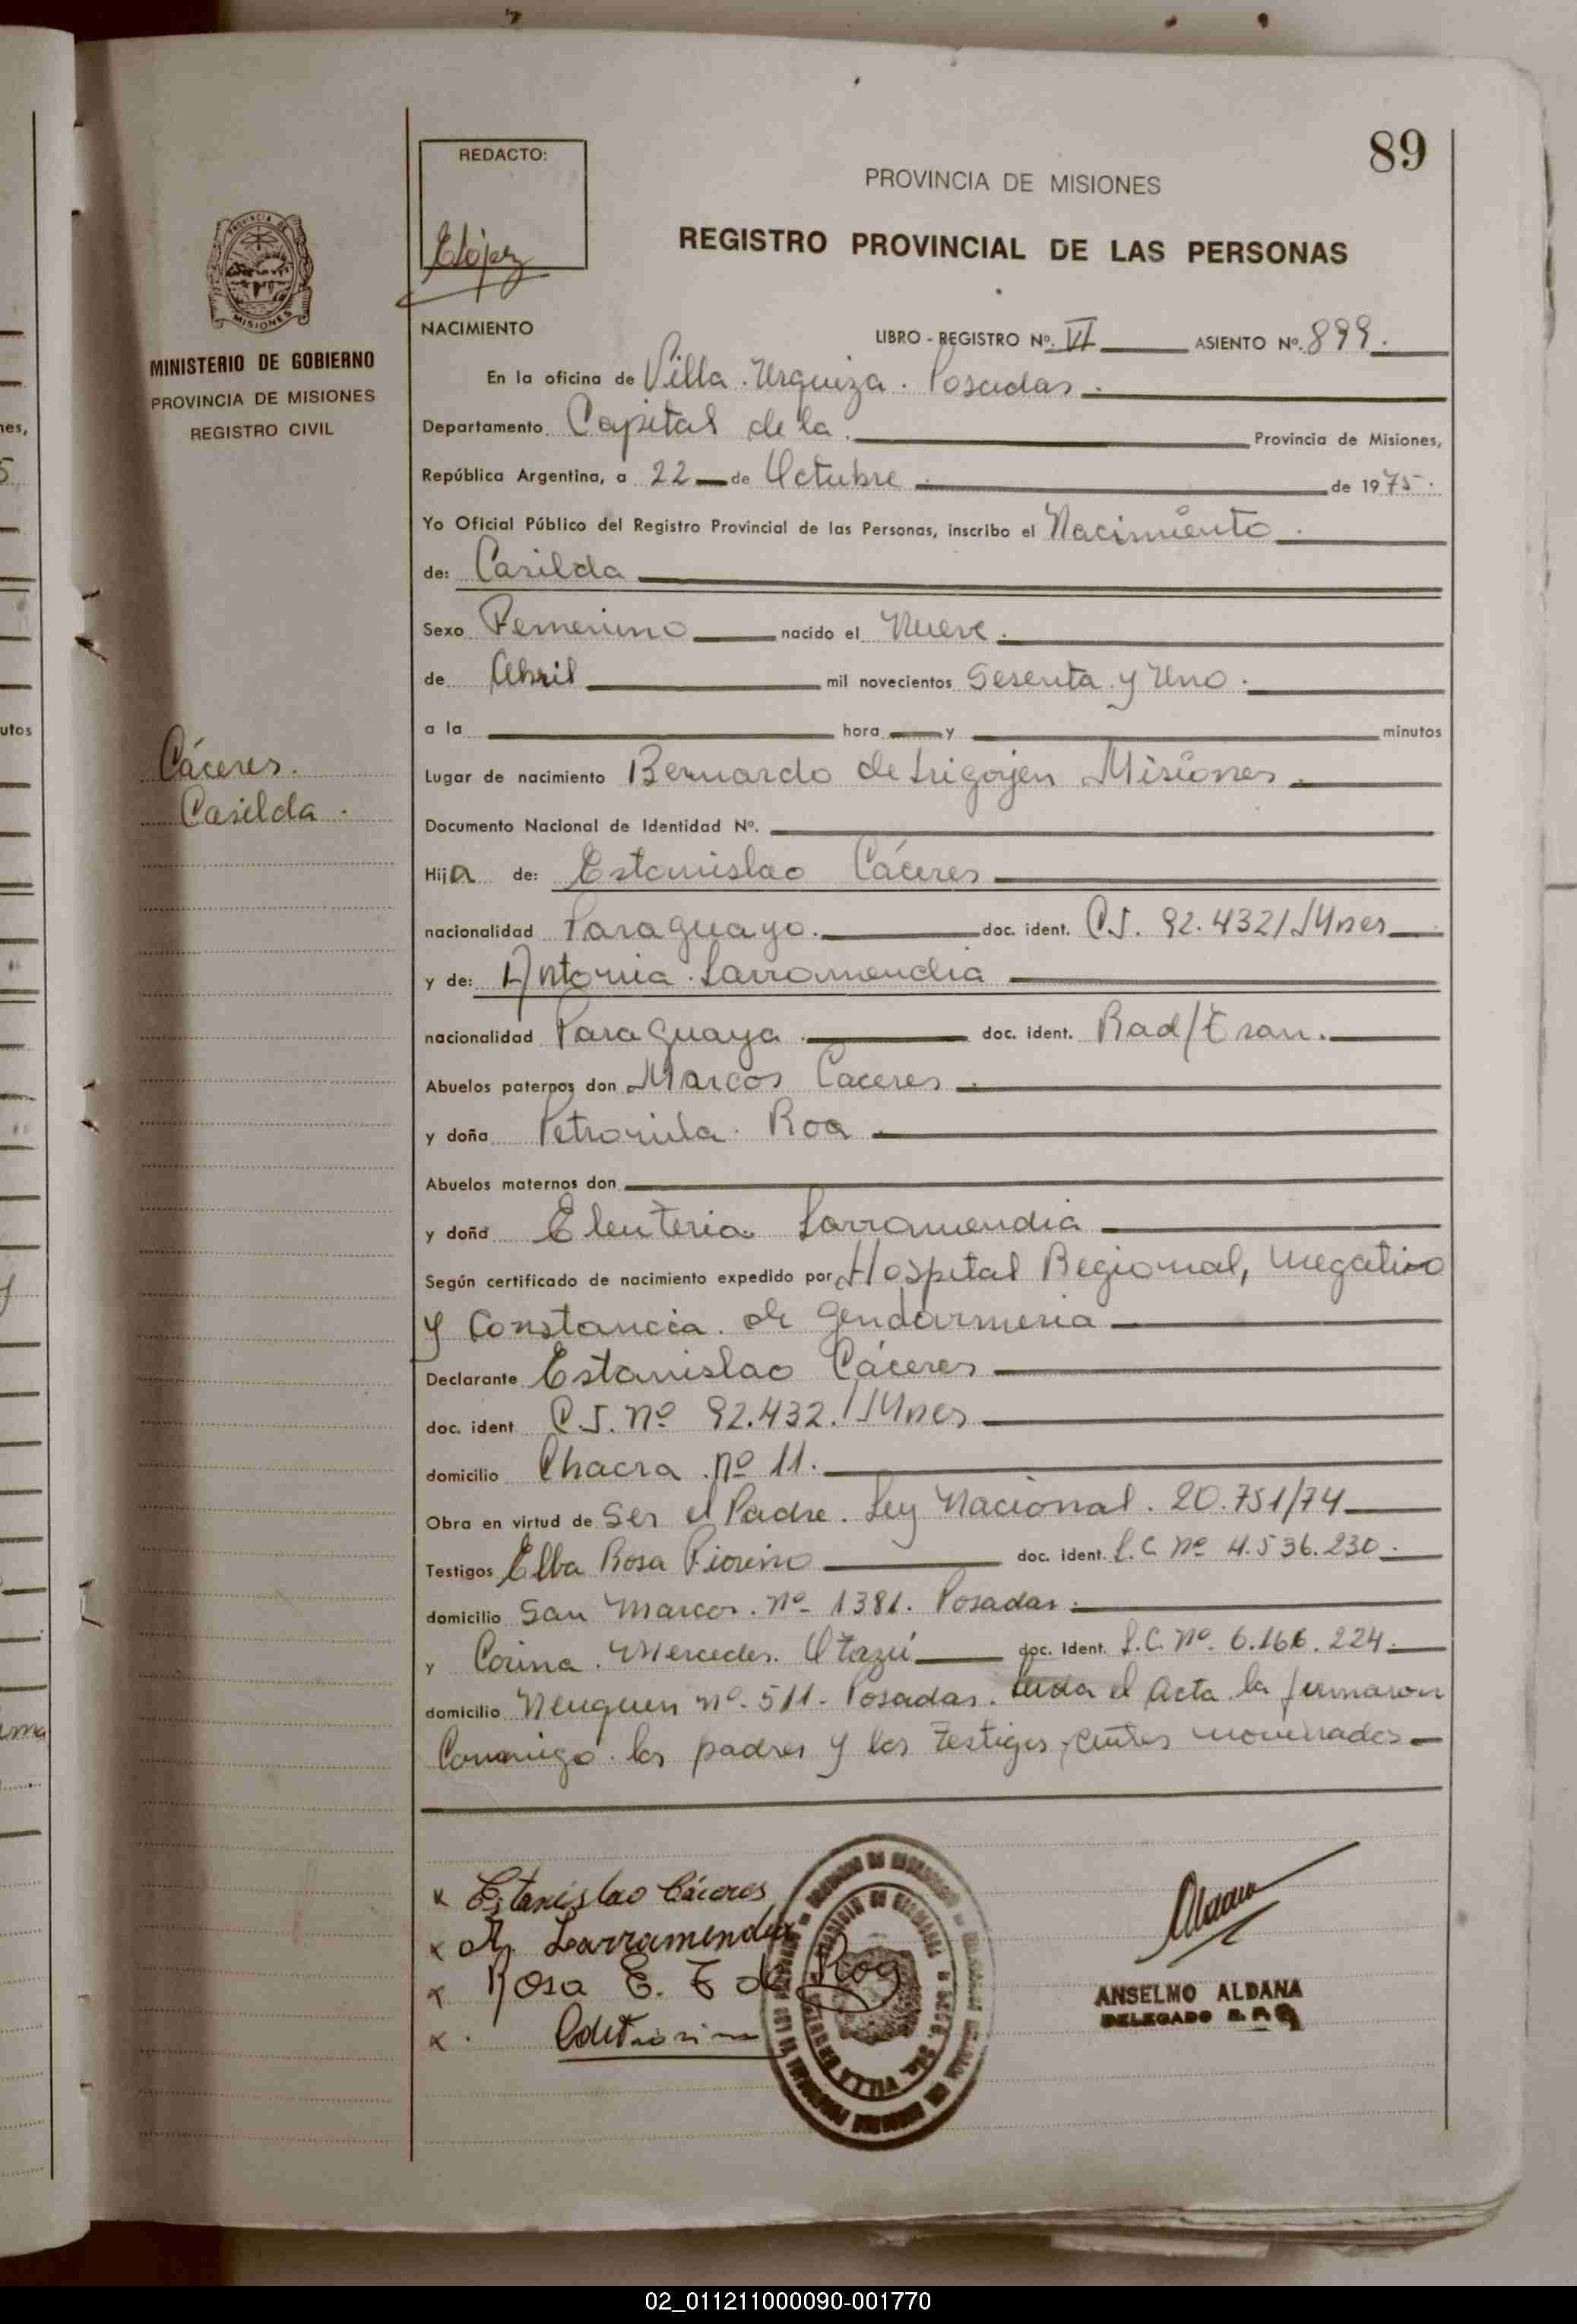 89
REDACTO:
ELópez
PROVINCIA DE MISIONES
REGISTRO PROVINCIAL DE LAS PERSONAS
PROVINCIA DE
MISIONES
MINISTERIO DE GOBIERNO
PROVINCIA DE MISIONES
REGISTRO CIVIL
NACIMIENTO
LIBRO - REGISTRO Nº. VI ASIENTO Nº. 899.
En la oficina de Villa Urquiza. Posadas.
Departamento Capital de la. Provincia de Misiones,
República Argentina, a 22 de Octubre de 1975.
Yo Oficial Público del Registro Provincial de las Personas, inscribo el Nacimiento
de: Casilda
Sexo Femenino nacido el Nueve.
de Abril mil novecientos Sesenta y Uno.
a la hora y minutos
Cáceres.
Casilda.
Lugar de nacimiento Bernardo de Irigoyen Misiones.
Documento Nacional de Identidad Nº.
Hija de: Estanislao Cáceres
nacionalidad Paraguayo. doc. ident. C.I. 92.432/
y de: Antonia Larramendia
nacionalidad Paraguaya doc. ident. Rad/Tran.
Abuelos paternos don Marcos Caceres
y doña Petronila Roa
Abuelos maternos don
y doña Eleuteria Larramendia
Según certificado de nacimiento expedido por Hospital Regional, Negativo
y Constancia de Gendarmeria
Declarante Estanislao Cáceres
doc. ident C.I. nº 92.432./
domicilio Chacra nº 11.
Obra en virtud de Ser el Padre. Ley Nacional. 20.751/74
Testigos Elba Rosa doc. ident. L.C. nº 4.536.230.
domicilio San Marcos. nº 1381. Posadas.
y Corina Mercedes Otazú doc. Ident. L.C. nº. 6.166.224.
domicilio Neuquen nº. 511. Posadas. Leida el Acta la firmaron
Conmigo los padres y los Testigos, antes nominados
x Estanislao Cáceres
x A. Larramendia
x Rosa E. F de Roa
x
VILLA URQUIZA
ANSELMO ALDANA
DELEGADO
02_011211000090-001770